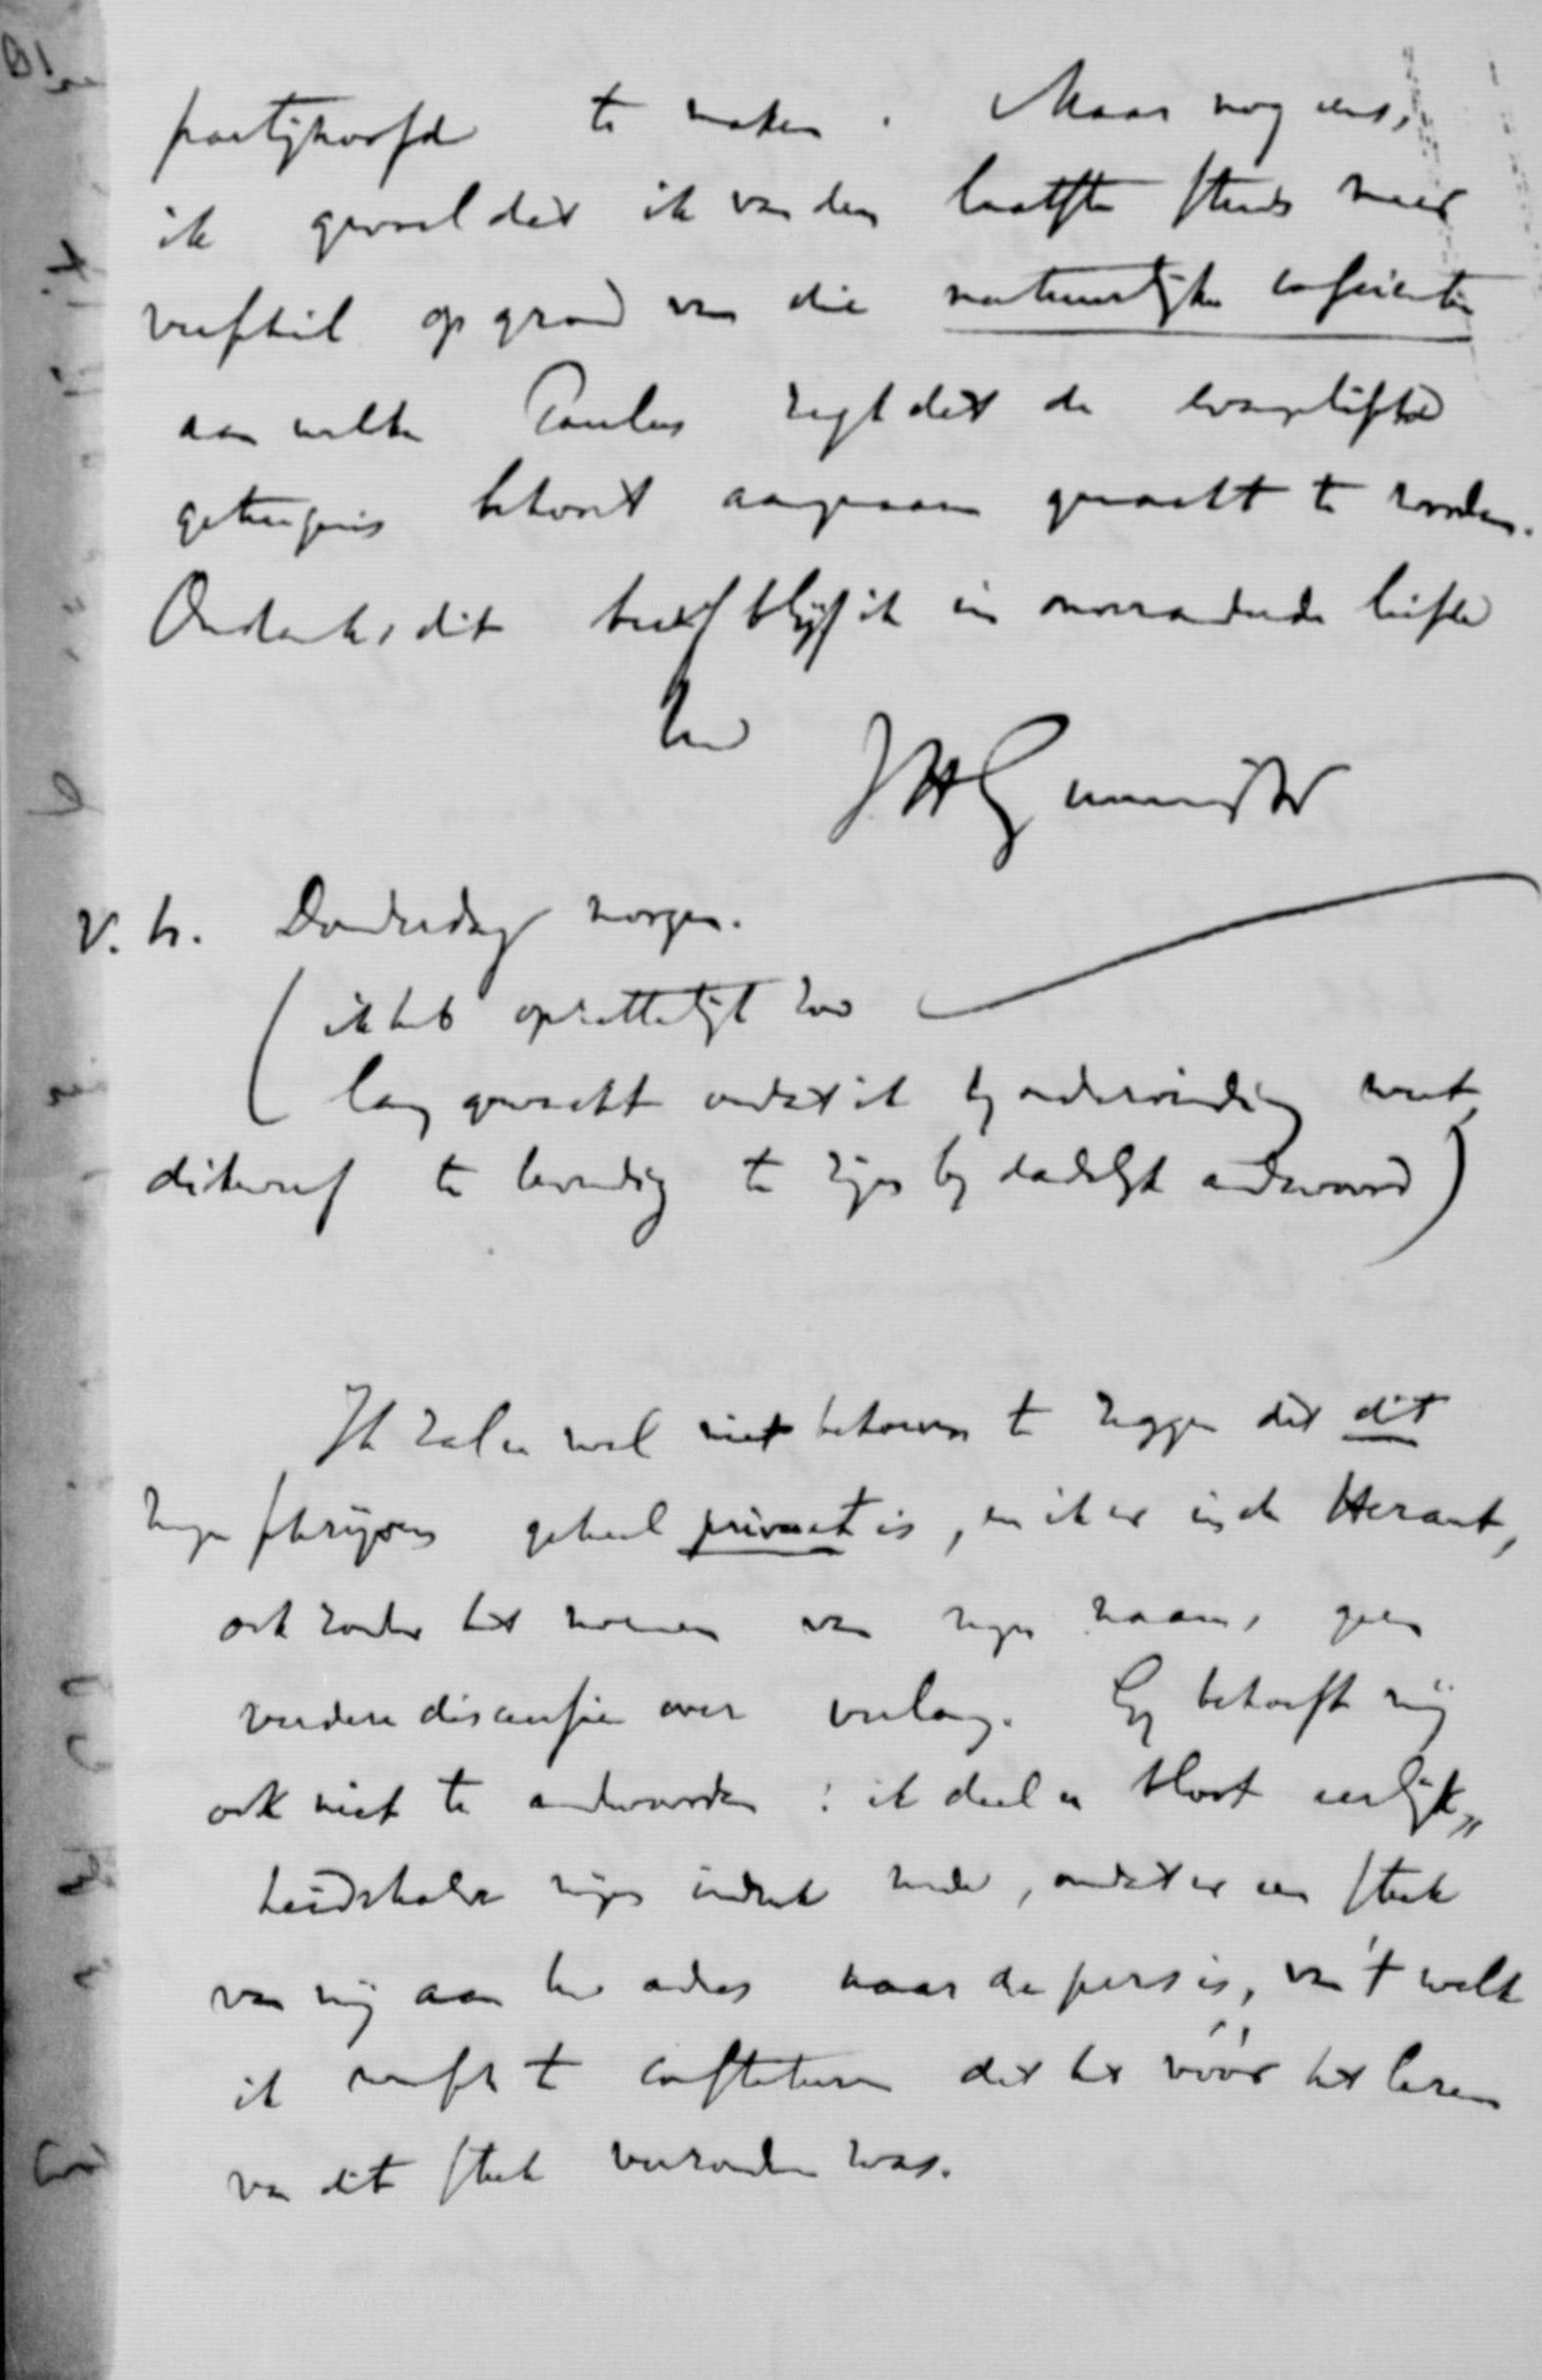 partijhoofd te maken. Maar nog eens,
ik gevoel dat ik van den laatsten steeds meer
verschil op grond van die natuurlijke conscientie
aan welke Paulus zegt dat de evangelische
getuigenis behoort aangenaam gemaakt te worden.
Ondanks dit blijf ik in onveranderde liefde
Uw
JHGunningJr
V. h. Donderdag morgen.
(ik heb opzettelijk zoo
lang gewacht omdat ik bij ondervinding weet,
dikwerf te levendig te zijn bij dadelijk antwoord)
Ik zal u wel niet behoeven te zeggen dat dit
mijn schrijven geheel privaat is, en ik er in de Heraut,
ook zonder het noemen van mijn naam, geen
verdere discussie over verlang. Gij behoeft mij
ook niet te antwoorden: ik deel u bloot eerlijk„
heidshalve mijn indruk mede, omdat er een stuk
van mij aan Uw adres naar de pers is, van 't welk
ik wensch te constateren dat het vóór het lezen
van dit stuk verzonden was.